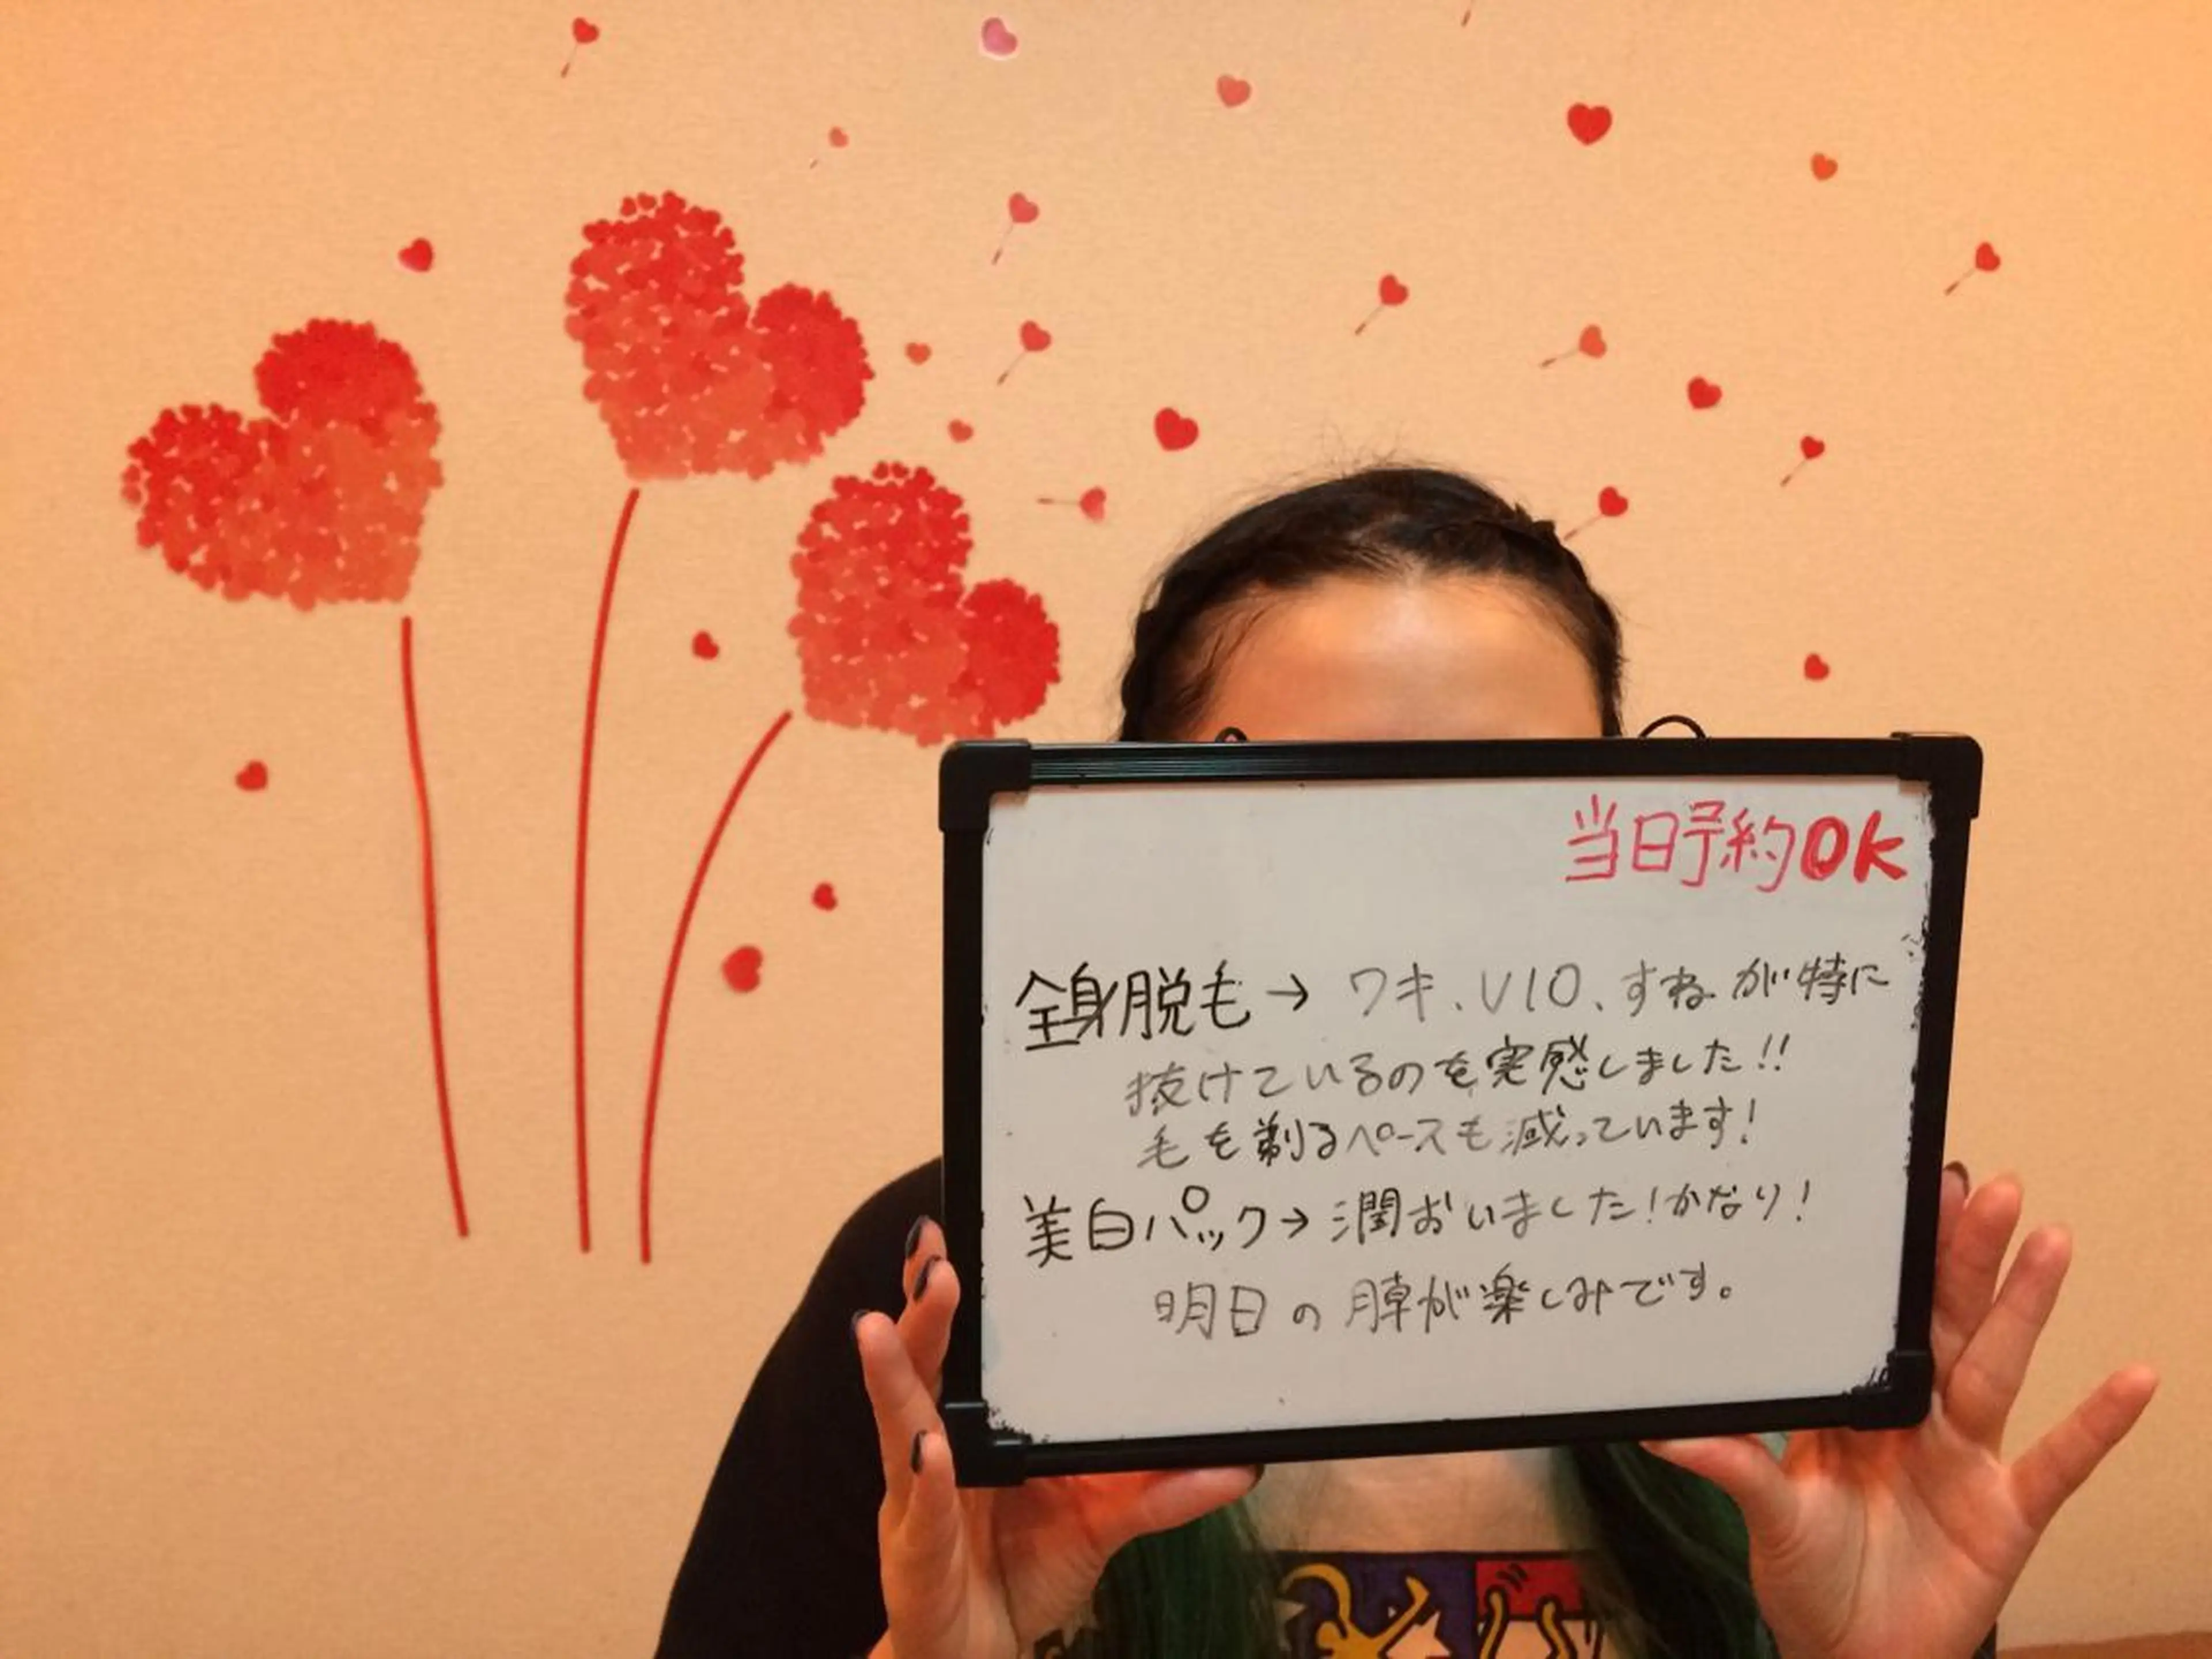 当日予約OK
全身脱毛→ワキ、VIO、すねが特に
抜けているのを実感しました!!
毛を剃るペースも減っています!
美白パック→潤おいました!かなり!
明日の膚が楽しみです。